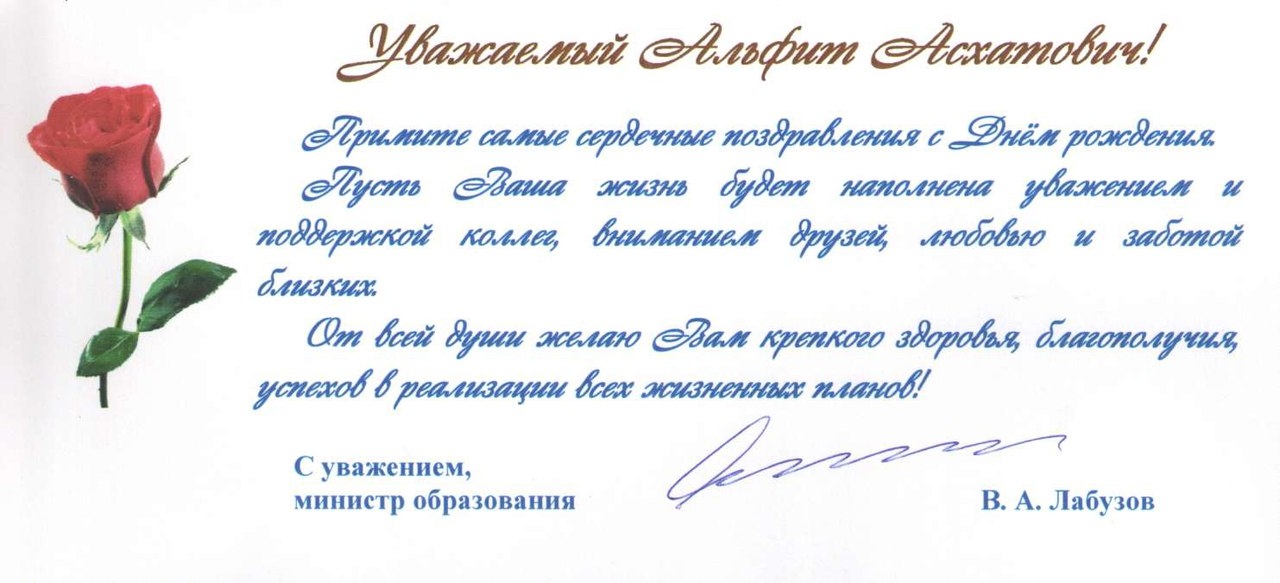 Уважаемый Альфит Асхатович!
Примите самые сердечные поздравления с Днём рождения.
Пусть Ваша жизнь будет наполнена уважением и
поддержкой коллег, вниманием друзей, любовью и заботой
близких.
От всей души желаю Вам крепкого здоровья, благополучия,
успехов в реализации всех жизненных планов!
С уважением,
министр образования
В. А. Лабузов